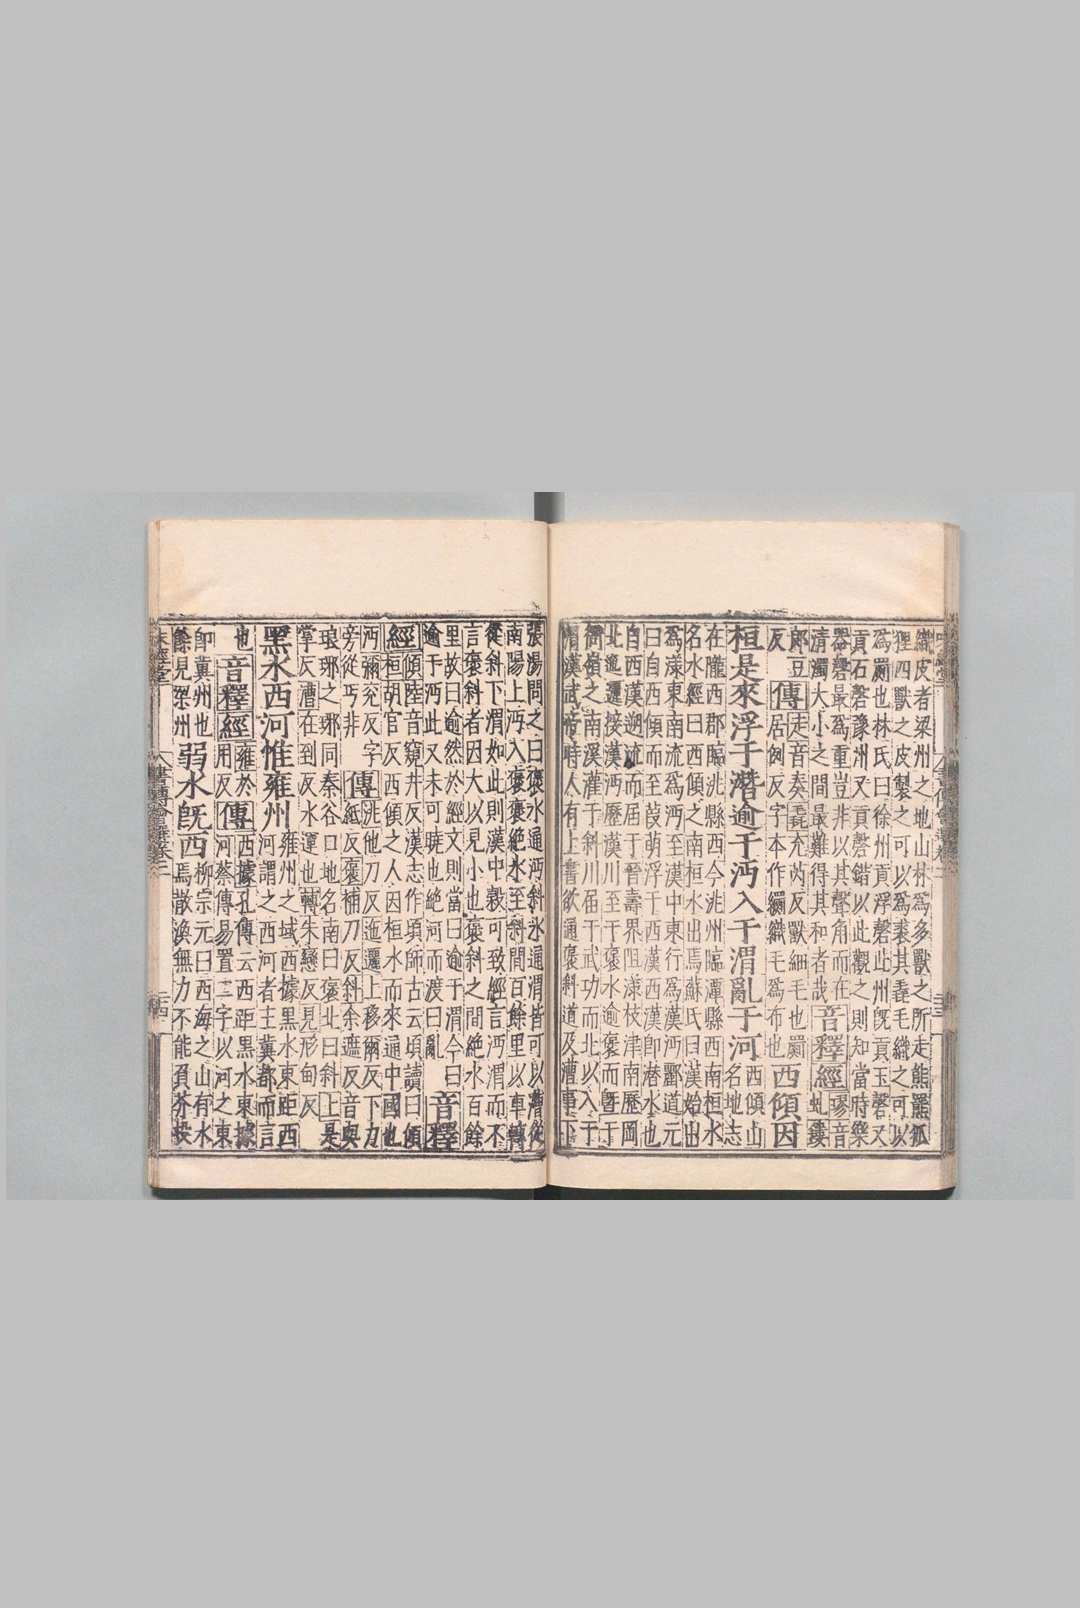 織皮者梁州之地山林爲多獸之所走熊羆狐
狸四獸之皮製之可以爲裘其毳毛織之可以
爲罽也林氏曰徐州貢浮磬此州旣貢玉磬又
貢石磬豫州又貢磬錯以此觀之則知當時樂
器磬最爲重豈非以其聲角而在
清濁大小之間最難得其和者哉音釋經璆音虯鏤
郎豆反
傳走音奏毳充芮反獸細毛也罽居匈反字本作𦇧織毛爲布也
西傾因
桓是來浮于潛逾于沔入于渭亂于河西傾山名地志
在隴西郡臨洮縣西今洮州臨潭縣西南桓水
名水經曰西傾之南桓水出焉蘇氏曰漢始出
爲漾東南流爲沔至漢中東行爲漢沔酈道元
曰自西傾而至葭萌浮于西漢西漢卽潛水也
自西漢遡流而屆于晉壽界阻漾枝津南歷岡
北迤邐接漢沔歷漢川至于褒水逾褒而曁于
衙嶺之南溪灌于斜川屆于武功而北以入于
渭漢武帝時人有上書欲通褒斜道及漕事下
張湯問之曰褒水通沔斜水通渭皆可以漕從
南陽上沔入褒褒絶水至斜間百餘里以車轉
從斜下渭如此則漢中穀可致經言沔渭而不
言褒斜者因大以見小也褒斜之間絶水百餘
里故曰逾然於經文則當曰逾于渭今曰
逾于沔此又未可曉也絶河而渡曰亂音釋
經桓胡官反西傾之人因桓水而來通中國也
傾陸音窺井反漢志作頃師古云頃讀曰傾
沔彌兖反字旁從丏非
傳洮他刀反迤邐上移爾反下力紙反褒補刀反斜余遮反音與
琅琊之琊同秦谷口地名南曰褒北曰斜上是
掌反漕在到反水運也轉朱戀反見形甸反
黑水西河惟雍州雍州之域西據黑水東距西河謂之西河者主冀都而言
也音釋經雍於用反傳西據孔傳云西距黑水東據河蔡傳易置二字以河之東
卽冀州也
餘見梁州弱水旣西柳宗元曰西海之山有水焉散渙無力不能負芥投